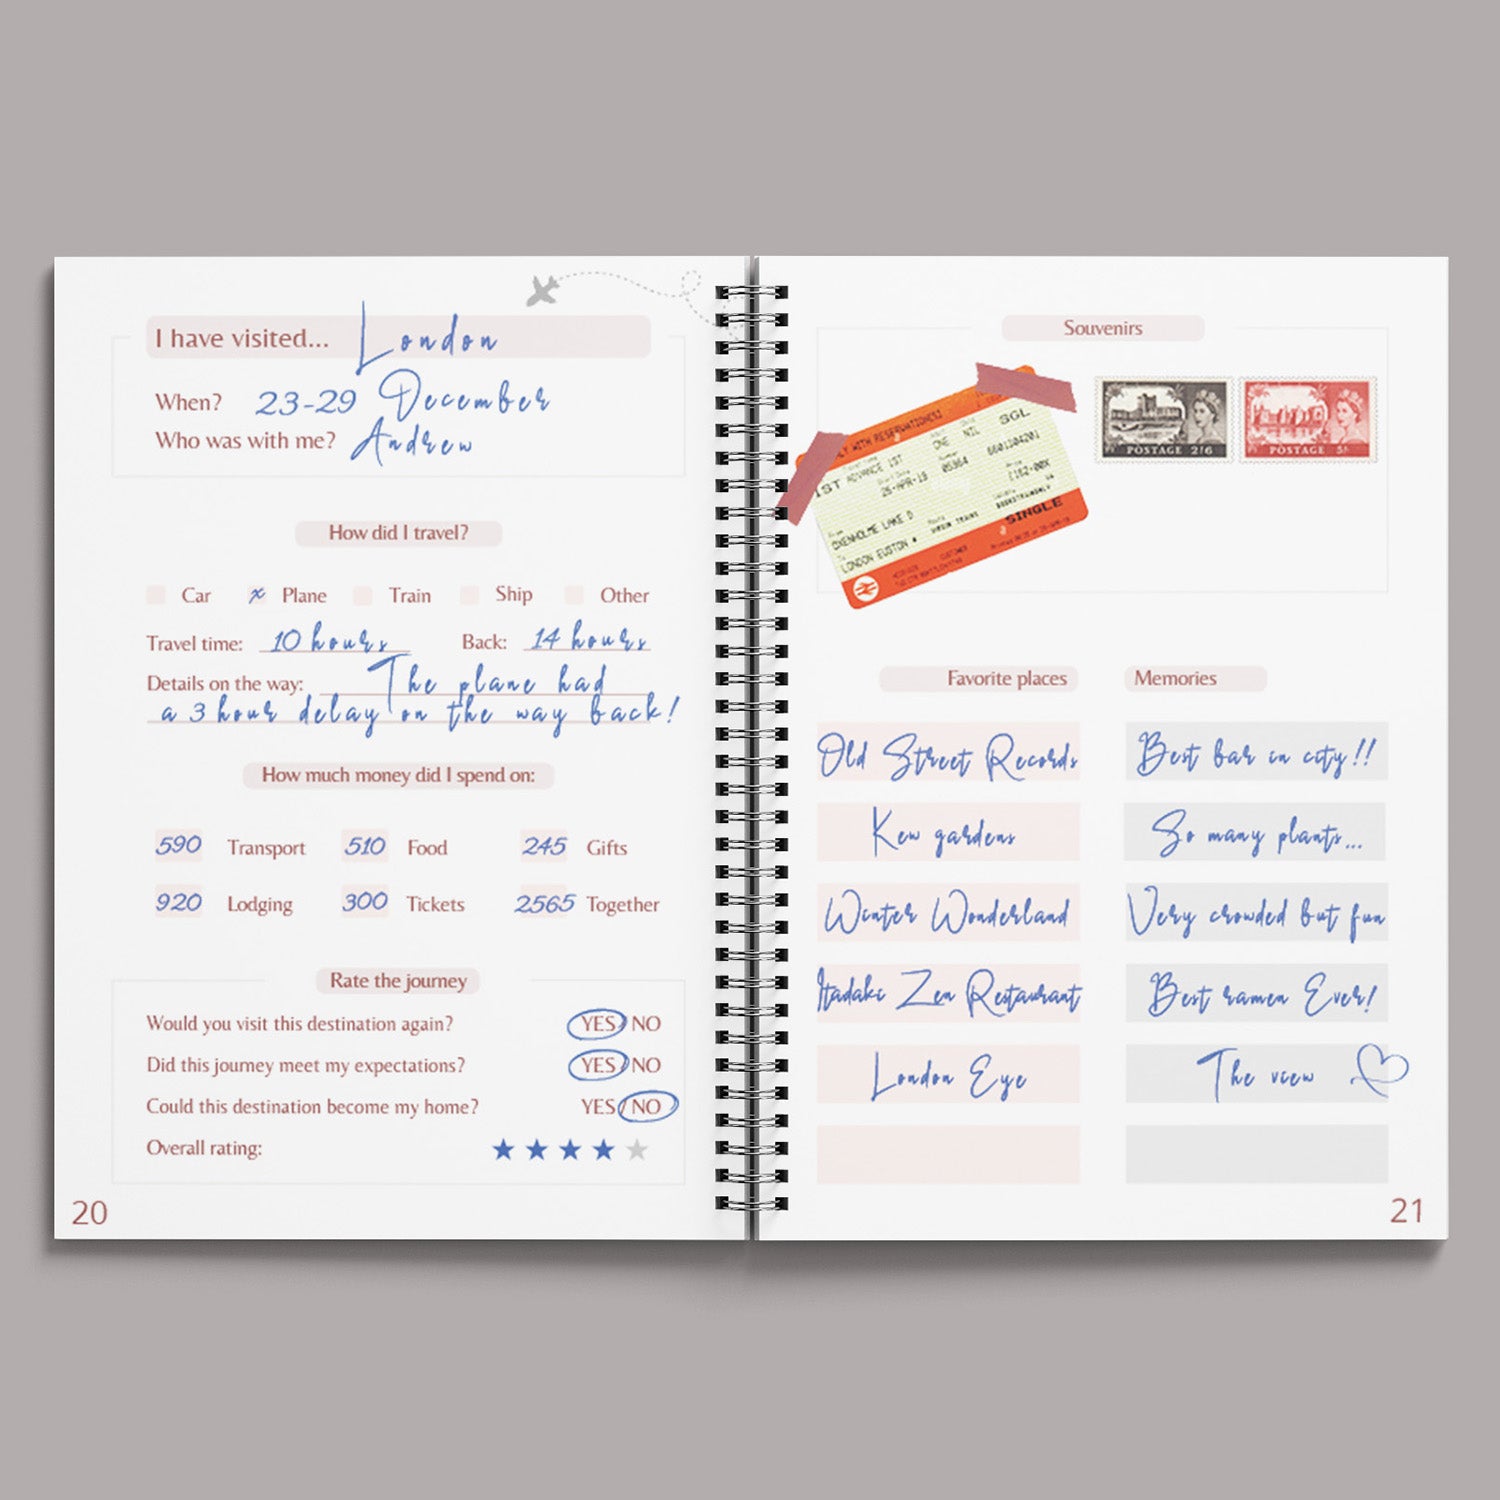 I have visited... London
When? 23-29 December
Who was with me? Andrew
How did I travel?
x Car Plane Train Ship Other
Travel time: 10 hours Back: 14 hours
Details on the way: The plane had
a 3 hour delay on the way back!
How much money did I spend on:
590 Transport 510 Food 245 Gifts
920 Lodging 300 Tickets 2565 Together
Rate the journey
Would you visit this destination again? YES/NO
Did this journey meet my expectations? YES/NO
Could this destination become my home? YES/NO
Overall rating:
20
Souvenirs
WITH RESERVATION(S)
SGL
1ST ADVANCE 1ST ONE NIL
26-APR-19 05364 6601304201
OXENHOLME LAKE D
LONDON EUSTON
VIRGIN TRAINS
SINGLE
POSTAGE 2/6
POSTAGE 5/-
Favorite places Memories
Old Street Records Best bar in city!!
Kew gardens So many plants...
Winter Wonderland Very crowded but fun
Itadaki Zen Restaurant Best ramen Ever!
London Eye The view
21